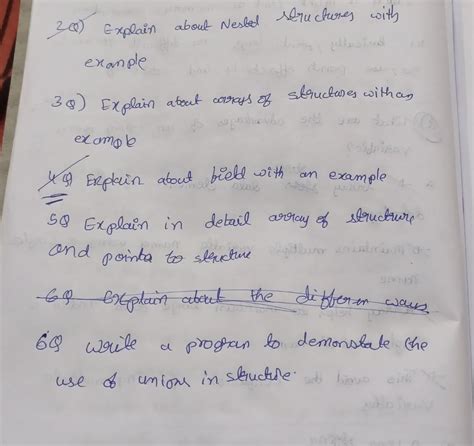 2Q) Explain about Nested structures with
example
3Q) Explain about arrays of structures with an
example
4Q Explain about field with an example
5Q Explain in detail array of structure
and pointa to structure
6Q Explain about the differen ways
6Q write a program to demonstate the
use of unions in structure.